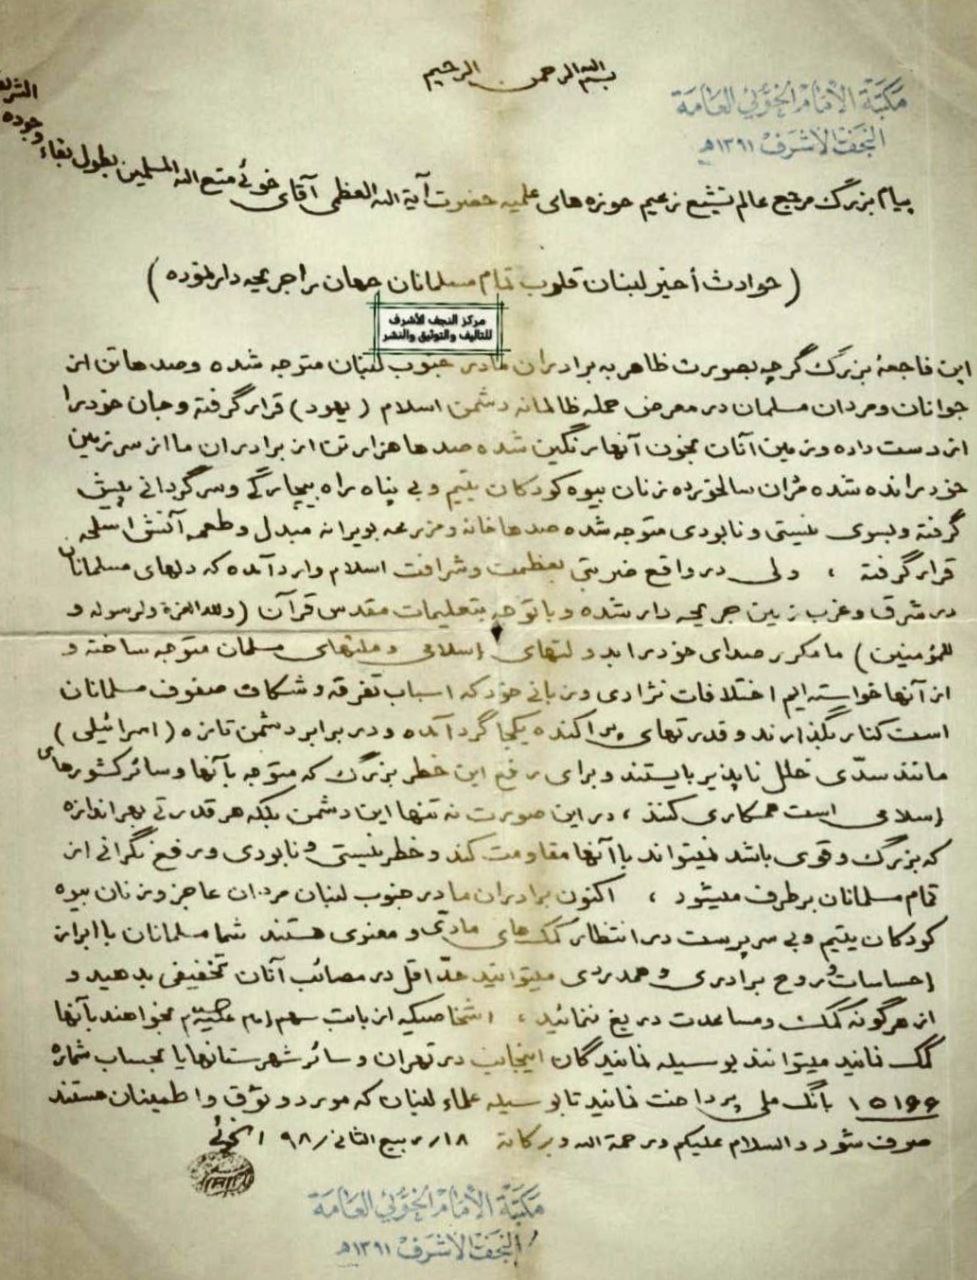 بسم الله الرحمن الرحیم
مكتبة الإمام الخوئي العامة
النجف الأشرف ١٣٩١هـ
پیام بزرگ مرجع عالم تشیع زعیم حوزه های علمیه حضرت آیة الله العظمی آقای خوئی متع الله المسلمین بطول بقاء وجوده الشریف
(حوادث أخیر لبنان قلوب تمام مسلمانان جهان را جریحه دار نموده)
مركز النجف الأشرف
للتأليف والتوثيق والنشر
این فاجعهٔ بزرگ گرچه بصورت ظاهر به برادران ما در جنوب لبنان متوجه شده وصدها تن از
جوانان ومردان مسلمان در معرض حمله ظالمانه دشمن اسلام (یهود) قرار گرفته وجان خود را
از دست داده وزمین آنان بخون آنها رنگین شده صدها هزار تن از برادران ما از سرزمین
خود رانده شده مردان سالخورده زنان بیوه کودکان یتیم و بی پناه راه بیچارگی وسرگردانی پیش
گرفته وبسوی نیستی ونابودی متوجه شده صدها خانه ومزرعه بویرانه مبدل وطعمه آتش اسلحه
قرار گرفته ، ولی در واقع ضربتی بعظمت وشرافت اسلام وارد آمده که دلهای مسلمانان
در شرق وغرب زمین جریحه دار شده وبا توجه بتعلیمات مقدس قرآن (ولله العزة ولرسوله و
للمؤمنین) ما مکرر صدای خود را بدولتهای اسلامی وملتهای مسلمان متوجه ساخته و
از آنها خواسته ایم اختلافات نژادی وزبانی خود که اسباب تفرقه وشکاف صفوف مسلمانان
است کنار بگذارند وقدرتهای پراکنده یکجا گرد آمده ودر برابر دشمن تازه (اسرائیلی)
مانند سدّی خلل ناپذیر بایستند وبرای رفع این خطر بزرگ که متوجه بآنها وسائر کشورهای
اسلامی است همکاری کنند ، در این صورت نه تنها این دشمن بلکه هر قدرتی بهر اندازه
که بزرگ وقوی باشد نمیتواند با آنها مقاومت کند وخطر نیستی ونابودی ورفع نگرانی از
تمام مسلمانان برطرف میشود ، اکنون برادران ما در جنوب لبنان مردان عاجز وزنان بیوه
کودکان یتیم وبی سرپرست در انتظار کمک های مادّی و معنوی هستند شما مسلمانان با ابراز
احساسات وروح برادری وهمدردی میتوانید حدّ اقل در مصائب آنان تخفیفی بدهید و
از هرگونه کمک ومساعدت دریغ ننمائید ، اشخاصیکه از بابت سهم امام بخواهند بآنها
کمک نمایند میتوانند بوسیله نمایندگان اینجانب در تهران وسائر شهرستانها یا بحساب شماره
۱۵۱۶۶ بانک ملی پرداخت نمایند تا بوسیله علماء لبنان که مورد وثوق واطمینان هستند
صرف شود والسلام علیکم ورحمة الله وبرکاته ۱۸/ربیع الثانی/۹۸ الخوئی
مكتبة الإمام الخوئي العامة
النجف الأشرف ١٣٩١هـ